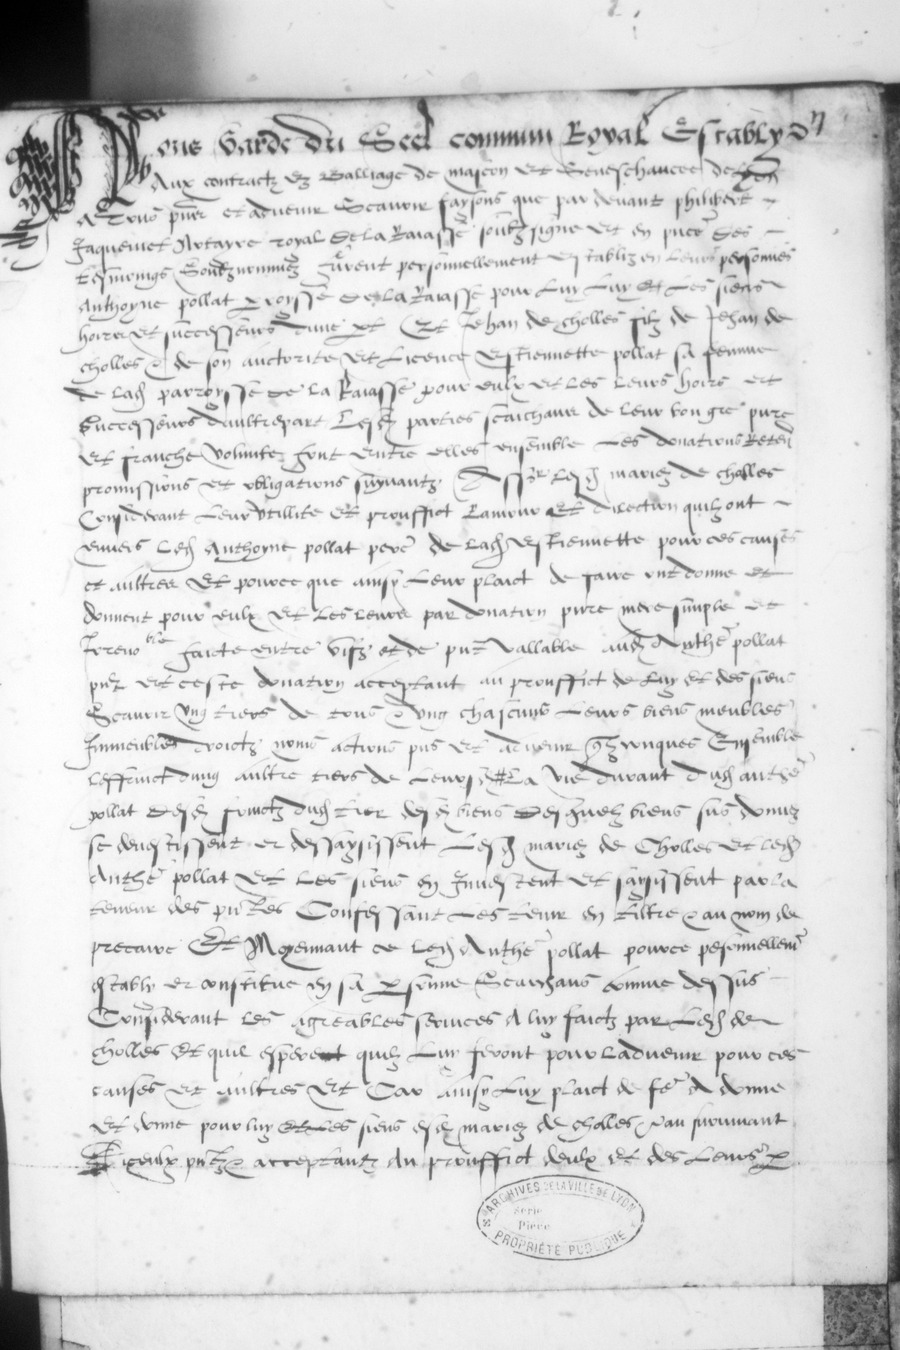 Nous Garde du Seel commun Royal Estably
Aux contractz Balliage de mascon et Seneschaucee de
A Tous pnr et advenir Scavoir faysons que par devant philipert
Jaquemet Notayre royal de la Raiasse soubzsigne et en pnce des
tesmoings Soubznommez furent personnellement establiz en leurs personnes
Anthoyne pollat de la Raiasse pour luy luy et les siens
hoirs et successeurs dune pt Et Jehan de cholles filz de Jehan de
cholles de son auctorite et licence estiennette pollat sa femme
de lad parroysse de la Raiasse pour eulx et les leurs hoirs et
Successeurs daultrepart Lesd parties scaichans de leur bon gre pure
et franche volunte font entre elles ensemble les donations
promissions et obligations suyvantz lesd mariez de cholles
Considerant leur utillite et prouffict Lamour et dilection quilz ont
envers led Anthoyne pollat pere de lad estiennette pour ces causes
et aultres et pource que ainsy leur plaict de faire ont donne et
donnent pour eulx et les leurs par donation pure mere simple et
Irrevoble faicte entre vifz et de vallable aud Anthe pollat
pnt et ceste donation acceptant au prouffict de luy et des siens
Scavoir ung tiers de tous ung chascungs leurs biens meubles
Immeubles droictz noms actions pns et advenir Ensemble
dung aultre tiers de leursd La vie durant dud anthe
pollat fruictz dud tier desd biens Desquelz biens sus donnez
se devestissent et dessaysissent Lesd mariez de Cholles et led
Anthe pollat et les siens en Investent et saysissent par la
teneur des pntes Confessant les tenir en tiltre au nom de
precaire Et Moyennant ce led Anthe pollat pource personnellemt
estably et constitue en sa personne Scaichans comme dessus
Considerant les agreables services A luy faictz par lesd de
cholles Et quil espere quilz luy feront pour ladvenir pour ces
causes et aultres Et Car ainsy luy plaict de fe A donne
et donne pour luy et les siens esd mariez de cholles au survivant
Diceulx pntz acceptantz Au prouffict deulx et des leurs
ARCHIVES DE LA VILLE DE LYON
Série
Pièce
PROPRIÉTÉ PUBLIQUE